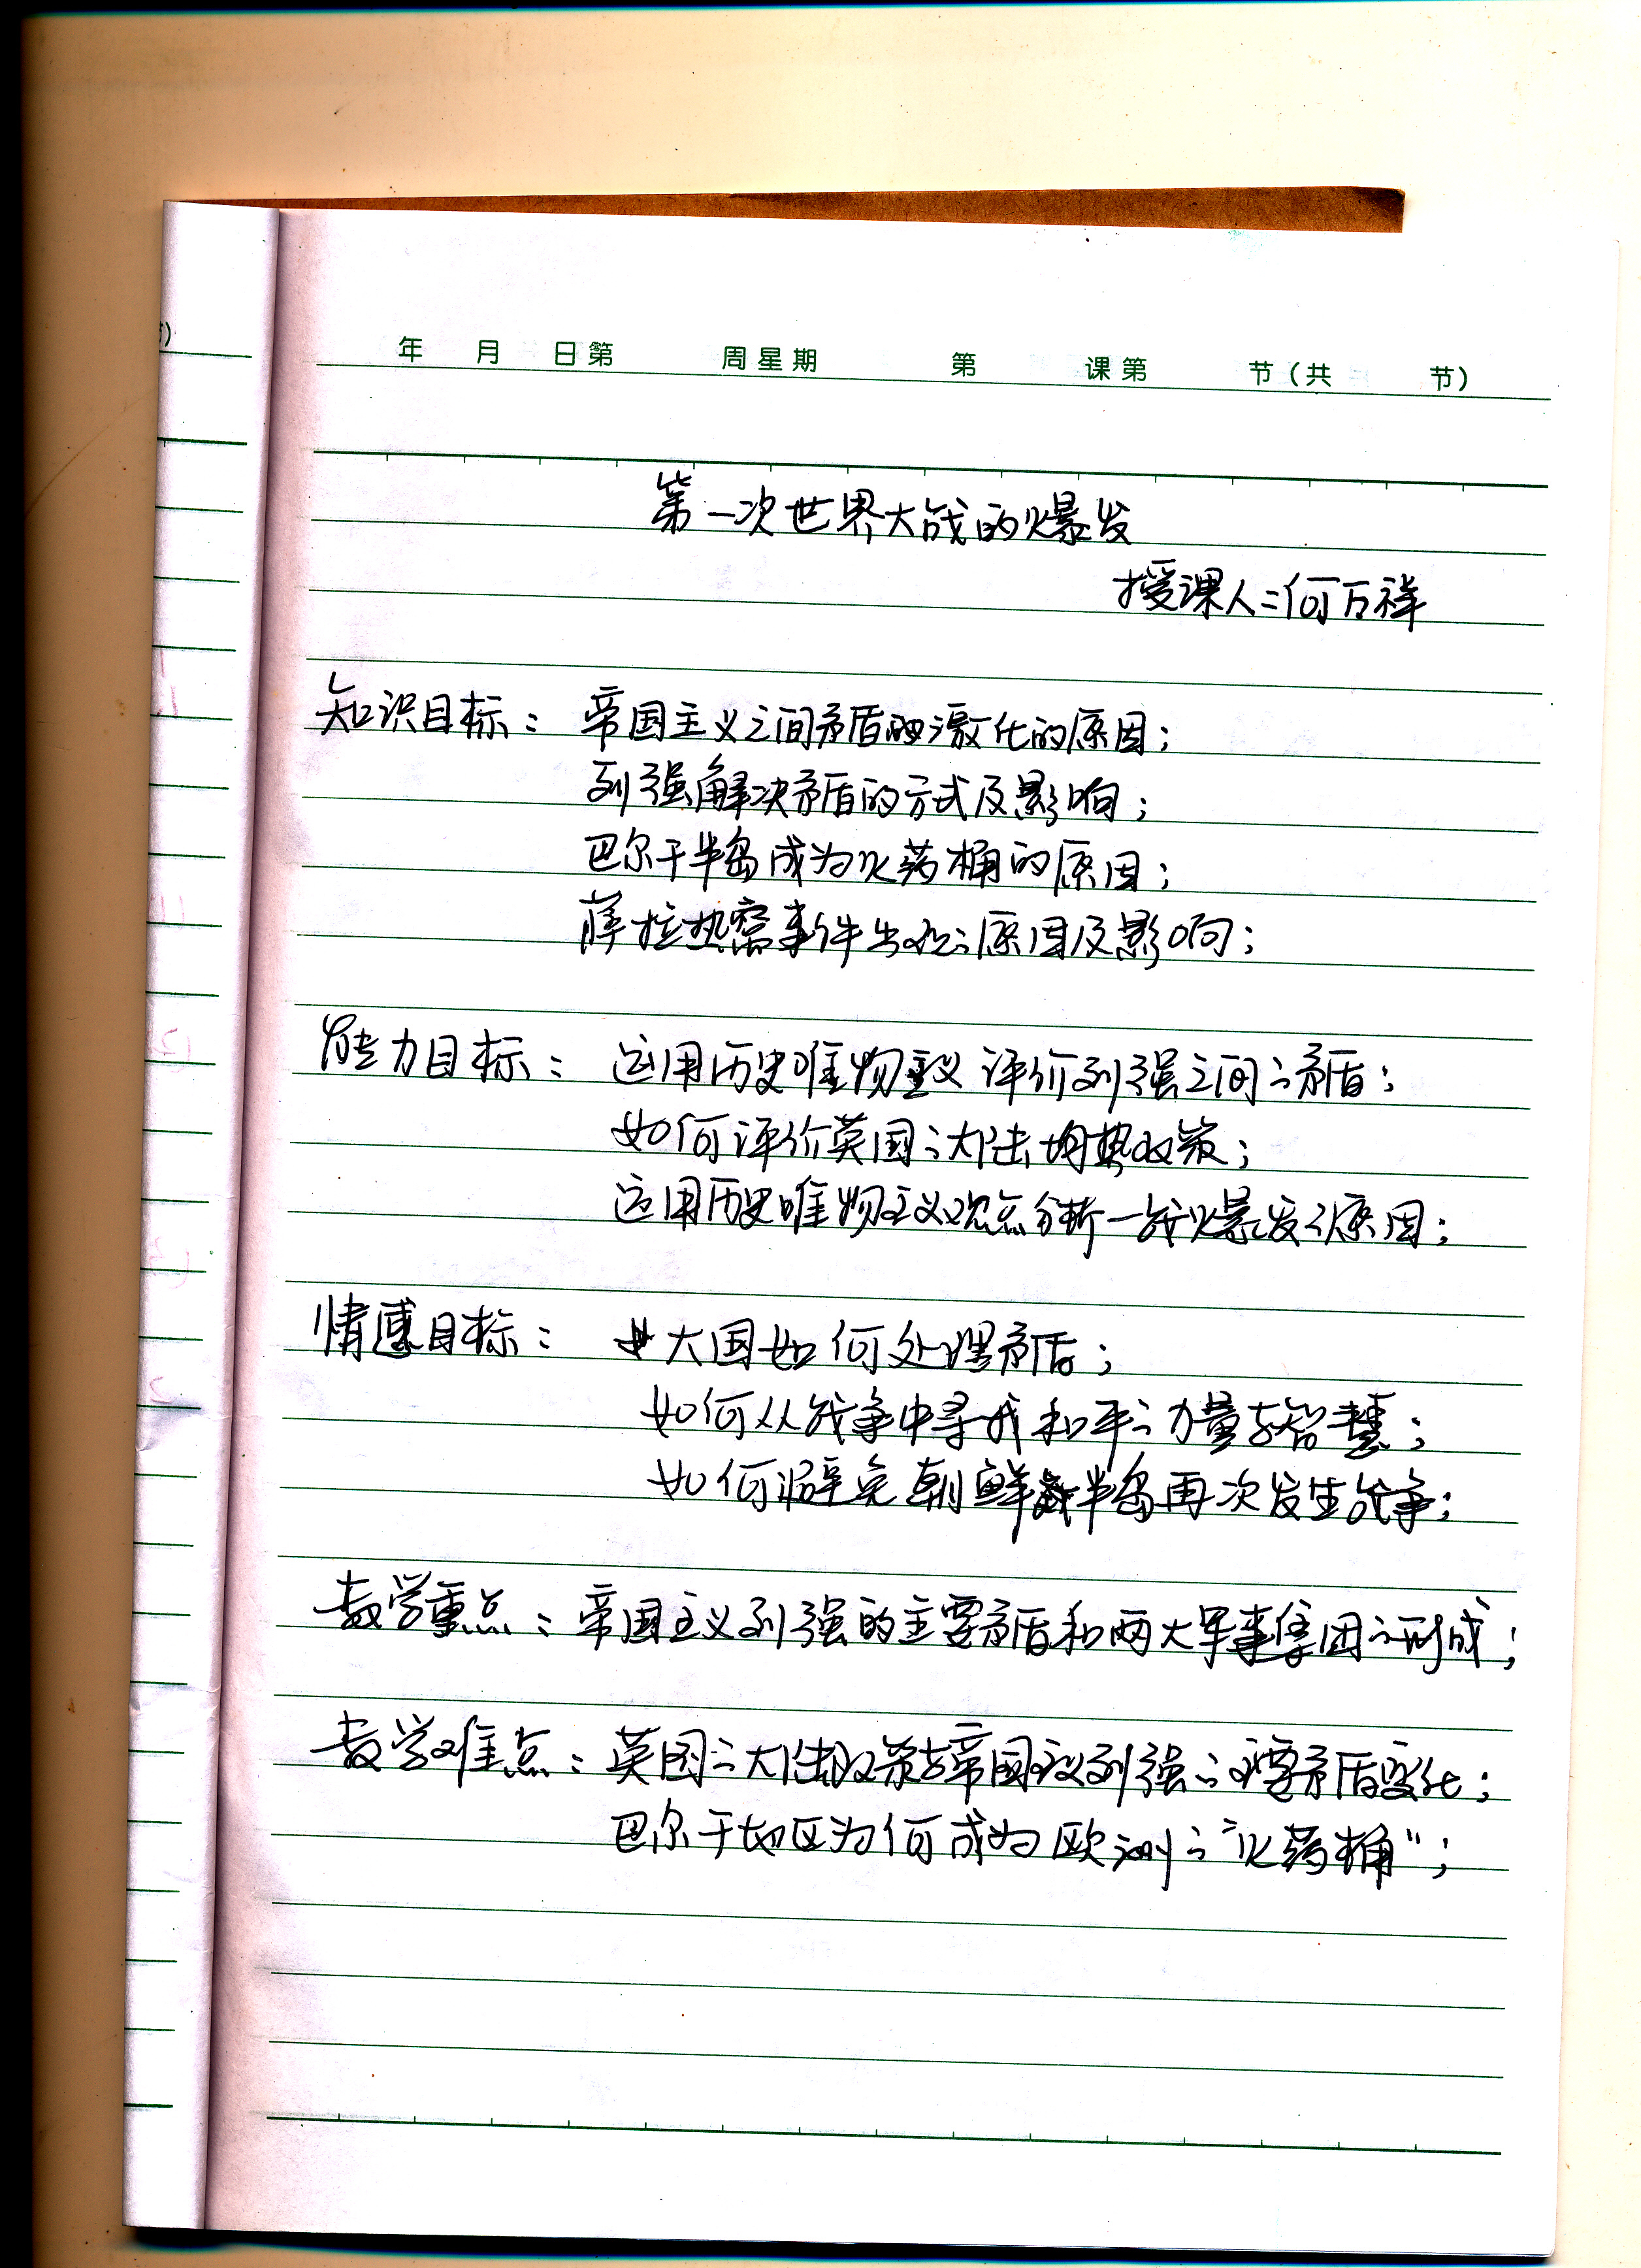 年 月 日 第 周 星 期 第 课 第 节 (共 节)
第一次世界大战的爆发
授课人:何万祥
知识目标: 帝国主义之间矛盾激化的原因;
列强解决矛盾的方式及影响;
巴尔干半岛成为火药桶的原因;
萨拉热窝事件出现之原因及影响;
能力目标: 运用历史唯物主义评价列强之间之矛盾;
如何评价英国之大陆均势政策;
运用历史唯物主义观点分析一战爆发之原因;
情感目标: 大国如何处理矛盾;
如何从战争中寻找和平之力量与智慧;
如何避免朝鲜半岛再次发生战争;
教学重点: 帝国主义列强的主要矛盾和两大军事集团之形成;
教学难点: 英国之大陆政策与帝国主义列强之主要矛盾变化;
巴尔干地区为何成为欧洲之“火药桶”;